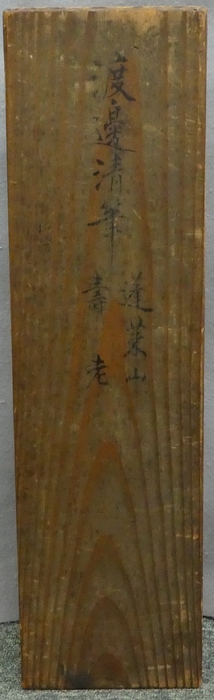 渡邊清筆
蓬莱山
壽老